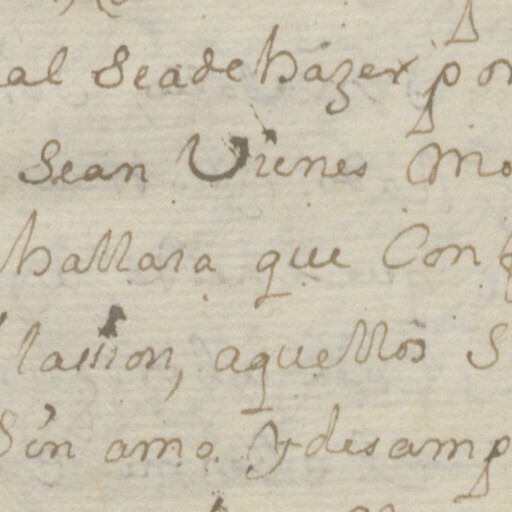 al Seade hazer por
Sean Vienes Mo
hallara que Con
lassion, aquellos S
Sin amo. Y desamp